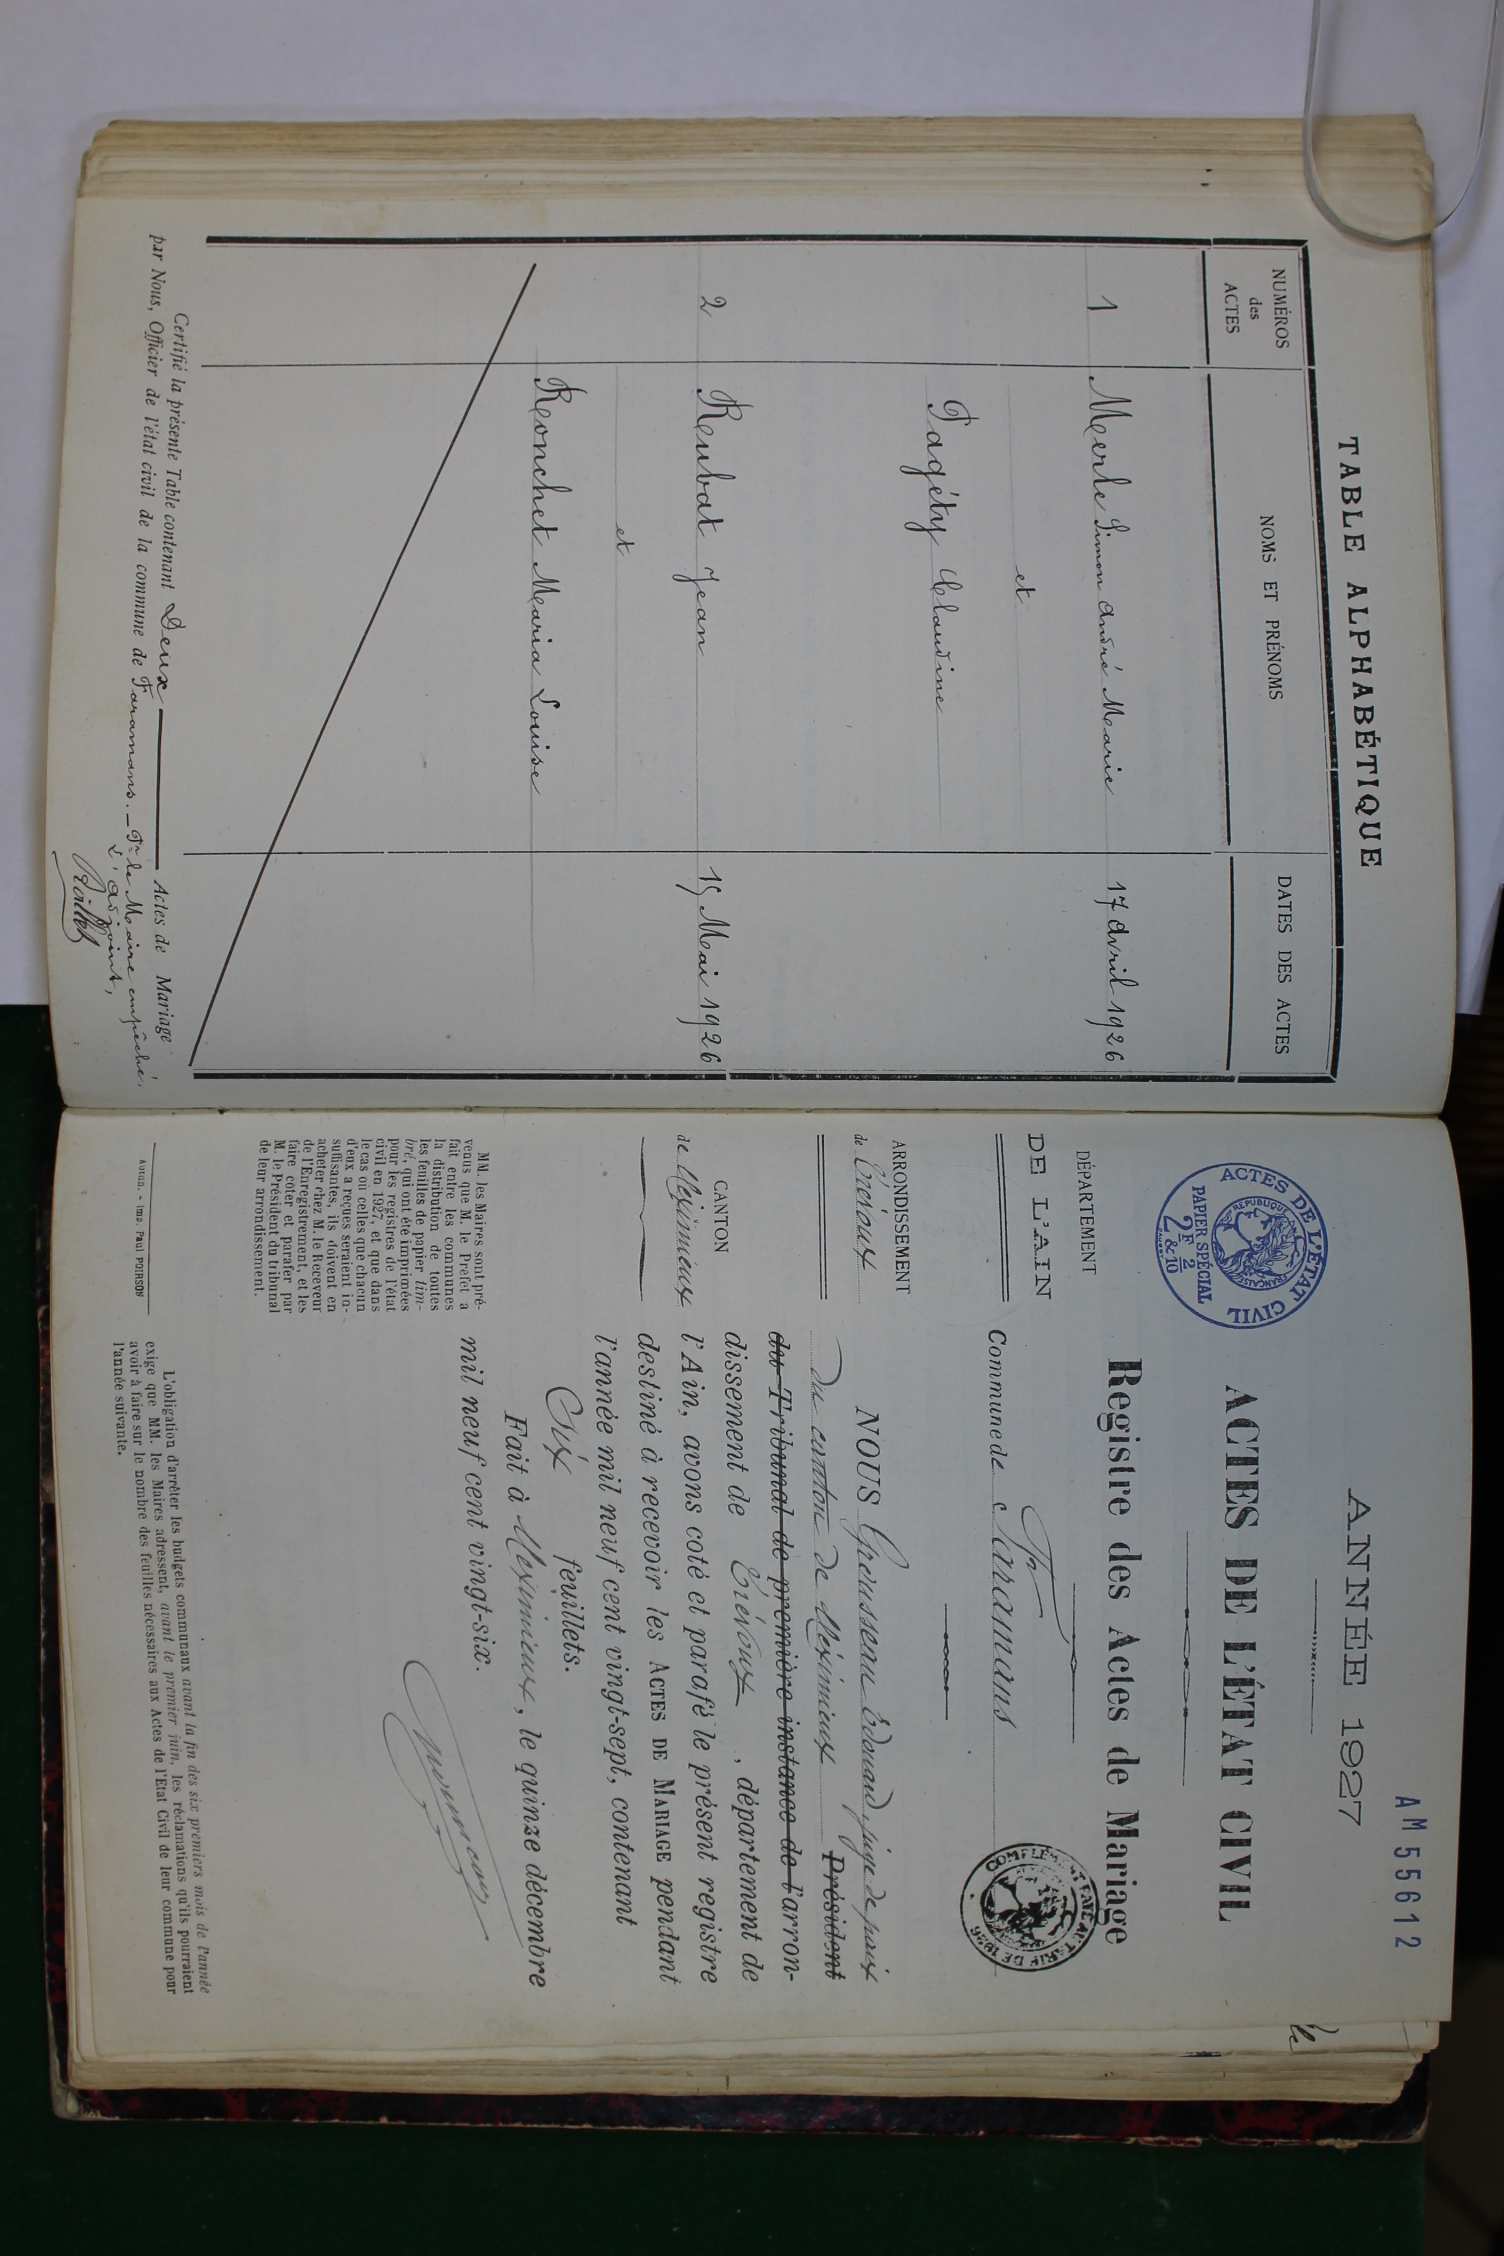 TABLE ALPHABÉTIQUE
NUMÉROS des ACTES
NOMS ET PRÉNOMS
DATES DES ACTES
1 Merle Simon André Marie 17 avril 1926
et
Pagéty Claudine
2 Reubat Jean 15 Mai 1926
et
Ronchet Maria Louise
Certifié la présente Table contenant Deux Actes de Mariage
par Nous, Officier de l'état civil de la commune de Faramans. – Pr le Maire empêché,
L'adjoint,
AM55612
ANNÉE 1927
ACTES DE L'ÉTAT CIVIL
PAPIER SPÉCIAL
2F 2
2 & 10
RÉPUBLIQUE FRANÇAISE
ACTES DE L'ÉTAT CIVIL
Registre des Actes de Mariage
DÉPARTEMENT
DE L'AIN
Commune de Faramans
COMPLÉMENT PAYÉ AU TARIF DE 1926
ARRONDISSEMENT
de Trévoux
CANTON
de Meximieux
NOUS Greusseau Edouard, juge de paix
du canton de Meximieux Président
du Tribunal de première instance de l'arron-
dissement de Trévoux, département de
l'Ain, avons coté et parafé le présent registre
destiné à recevoir les ACTES DE MARIAGE pendant
l'année mil neuf cent vingt-sept, contenant
Six feuillets.
Fait à Meximieux, le quinze décembre
mil neuf cent vingt-six.
MM. les Maires sont pré-
venus que M. le Préfet a
fait entre les communes
la distribution de toutes
les feuilles de papier tim-
bré, qui ont été imprimées
pour les registres de l'état
civil en 1927, et que dans
le cas où celles que chacun
d'eux a reçues seraient in-
suffisantes, ils doivent en
acheter chez M. le Receveur
de l'Enregistrement, et les
faire coter et parafer par
M. le Président du tribunal
de leur arrondissement.
L'obligation d'arrêter les budgets communaux avant la fin des six premiers mois de l'année
exige que MM. les Maires adressent, avant le premier juin, les réclamations qu'ils pourraient
avoir à faire sur le nombre des feuilles nécessaires aux Actes de l'Etat Civil de leur commune pour
l'année suivante.
- Imp. Paul POIRSON